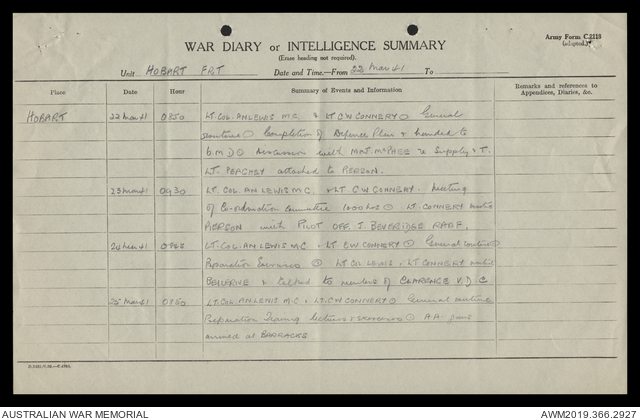 Army Form C.2118
(adapted.)
WAR DIARY or INTELLIGENCE SUMMARY
(Erase heading not required).
Unit HOBART FRT Date and Time.—From 22 Mar 41 To
Place Date Hour Summary of Events and Information Remarks and references to Appendices, Diaries, &c.
HOBART 22 Mar 41 0850 LT. COL. AN LEWIS M.C. & LT CW CONNERY. General
routine. Completion of Defence Plan & handed to
B.M. Discussion with MAJ. McPHEE re Supply & T.
LT. PEACHEY attached to PIERSON.
23 Mar 41 0930 LT. COL. AN LEWIS M.C. & LT CW CONNERY. Meeting
of Co-ordination Committee 1000 hrs. LT. CONNERY
PIERSON with PILOT OFF. J. BEVERIDGE RAAF.
24 Mar 41 LT. COL. AN LEWIS M.C. LT CW CONNERY. General routine
Preparation. LT Col LEWIS, LT CONNERY
BELLERIVE & talked to members of CLARENCE V.D.C
25 Mar 41 0850 LT. COL. AN LEWIS M.C. LT. CW CONNERY. General routine
Preparation Training lectures. A.A. guns
arrived at BARRACKS
AUSTRALIAN WAR MEMORIAL
AWM2019.366.2927